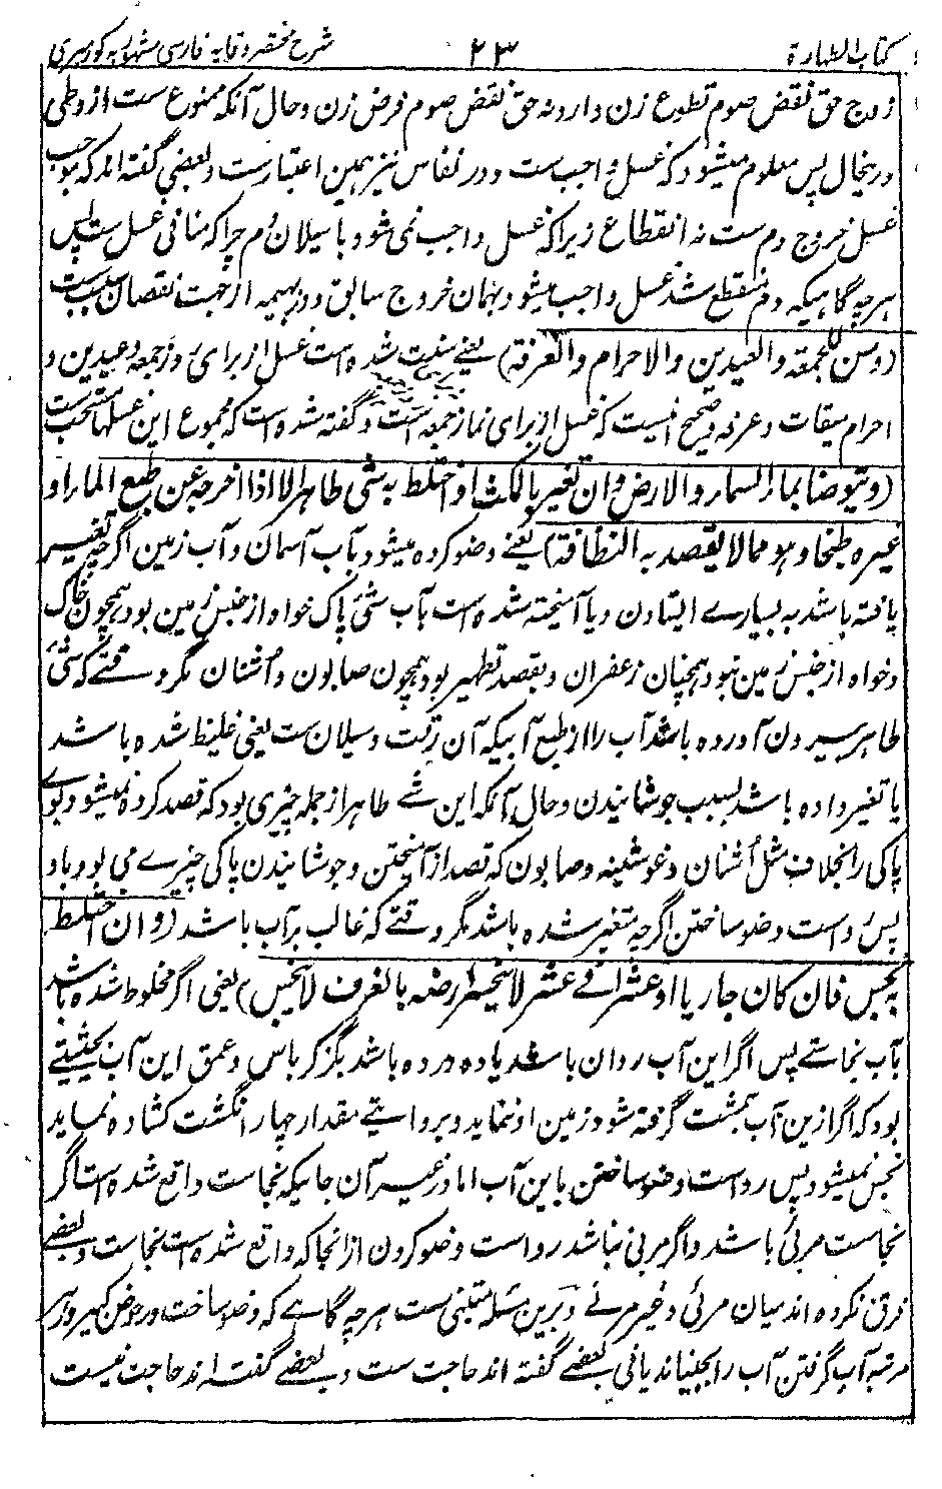 کتاب الطهارة ۲۳ شرح مختصر وقایه فارسی مشهور به کورسری
زوج حق نقض صوم تطوع زن دارد نه حق نقض صوم فرض زن و حال آنکه ممنوع ست از وطی
درینحال پس معلوم میشود که غسل واجب ست و در نفاس نیز همین اعتبارست و بعضی گفته اند که موجب
غسل خروج دم ست نه انقطاع زیرا که غسل واجب نمی شود با سیلان دم چرا که منافی غسل ست پس
هرچه گاهیکه دم منقطع شد غسل واجب میشود بهمان خروج سابق و در بهیمه از جهت نقصان سببیت
(وسن للجمعة والعیدین والاحرام والعرفة) یعنے سنت شده است غسل از برای روز جمعه وعیدین و
احرام میقات و عرفه و صحیح اینست که غسل از برای نماز جمعه است و گفته شده است که مجموع این غسلها مستحب ست
(ویتوضأ بماء السماء والارض وان تغیر بالمکث او اختلط به شئ طاهر الا اذا اخرجه عن طبع الماء او
غیره طبخا وهو مما لا یقصد به النظافة) یعنے وضو کرده میشود بآب آسمان و آب زمین اگرچه تغییر
یافته باشد به بسیارے ایستادن و یا آمیخته شده است بآب شئ پاک خواه از جنس زمین بود همچون خاک
وخواه از جنس زمین نبود همچنان زعفران و بقصد تطهیر بود همچون صابون و اشنان مگر وقتے که شئ
طاهر بیرون آورده باشد آب را از طبع آبیکه آن رقت و سیلان ست یعنی غلیظ شده باشد
یا تغیر داده باشد بسبب جوشانیدن و حال آنکه این شے طاهر از جمله چیزی بود که قصد کرده نمیشود بوے
پاکی را بخلاف مثل اشنان و غوشینه و صابون که قصد از آمیختن و جوشانیدن پاکی چیزے می بود باو
پس رواست وضو ساختن اگرچه متغیر شده باشد مگر وقتے که غالب بر آب باشد (وان اختلط
به نجس فان کان جاریا او عشرا فے عشر لا ینحسر ارضه بالغرف لا ینجس) یعنی اگر مخلوط شده باشد
بآب نجاستے پس اگر این آب روان باشد یا ده در ده باشد بگز کرباس و عمق این آب بحیثیتے
بود که اگر ازین آب بمشت گرفته شود زمین او ننماید و بروایتے مقدار چهار انگشت کشاده ننماید
نجس نمیشود پس رواست وضو ساختن باین آب اما در غیر آن جایکه نجاست واقع شده است اگر
نجاست مرئی باشد و اگر مرئی نباشد رواست وضو کردن از انجا که واقع شده است نجاست و بعضے
فرق نکرده اند میان مرئی و غیر مرئے و برین مسئله مبتنی ست هرچه گاهے که وضو ساخت در حوض کبیر و هر
مرتبه آب گرفتن آب را بجنباند یا نی بعضے گفته اند حاجت ست و بعضے گفته اند حاجت نیست